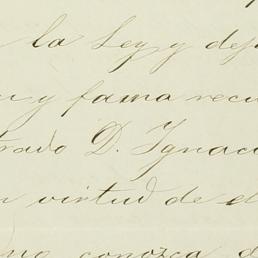 la Ley y dej
y fama recu
trado D. Ignaci
virtud de el
no conozca d